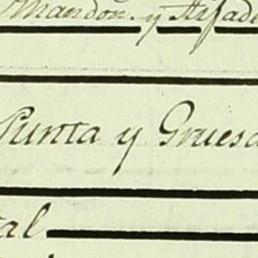 Mandon. y Arifad
Punta y Gruesa
tal